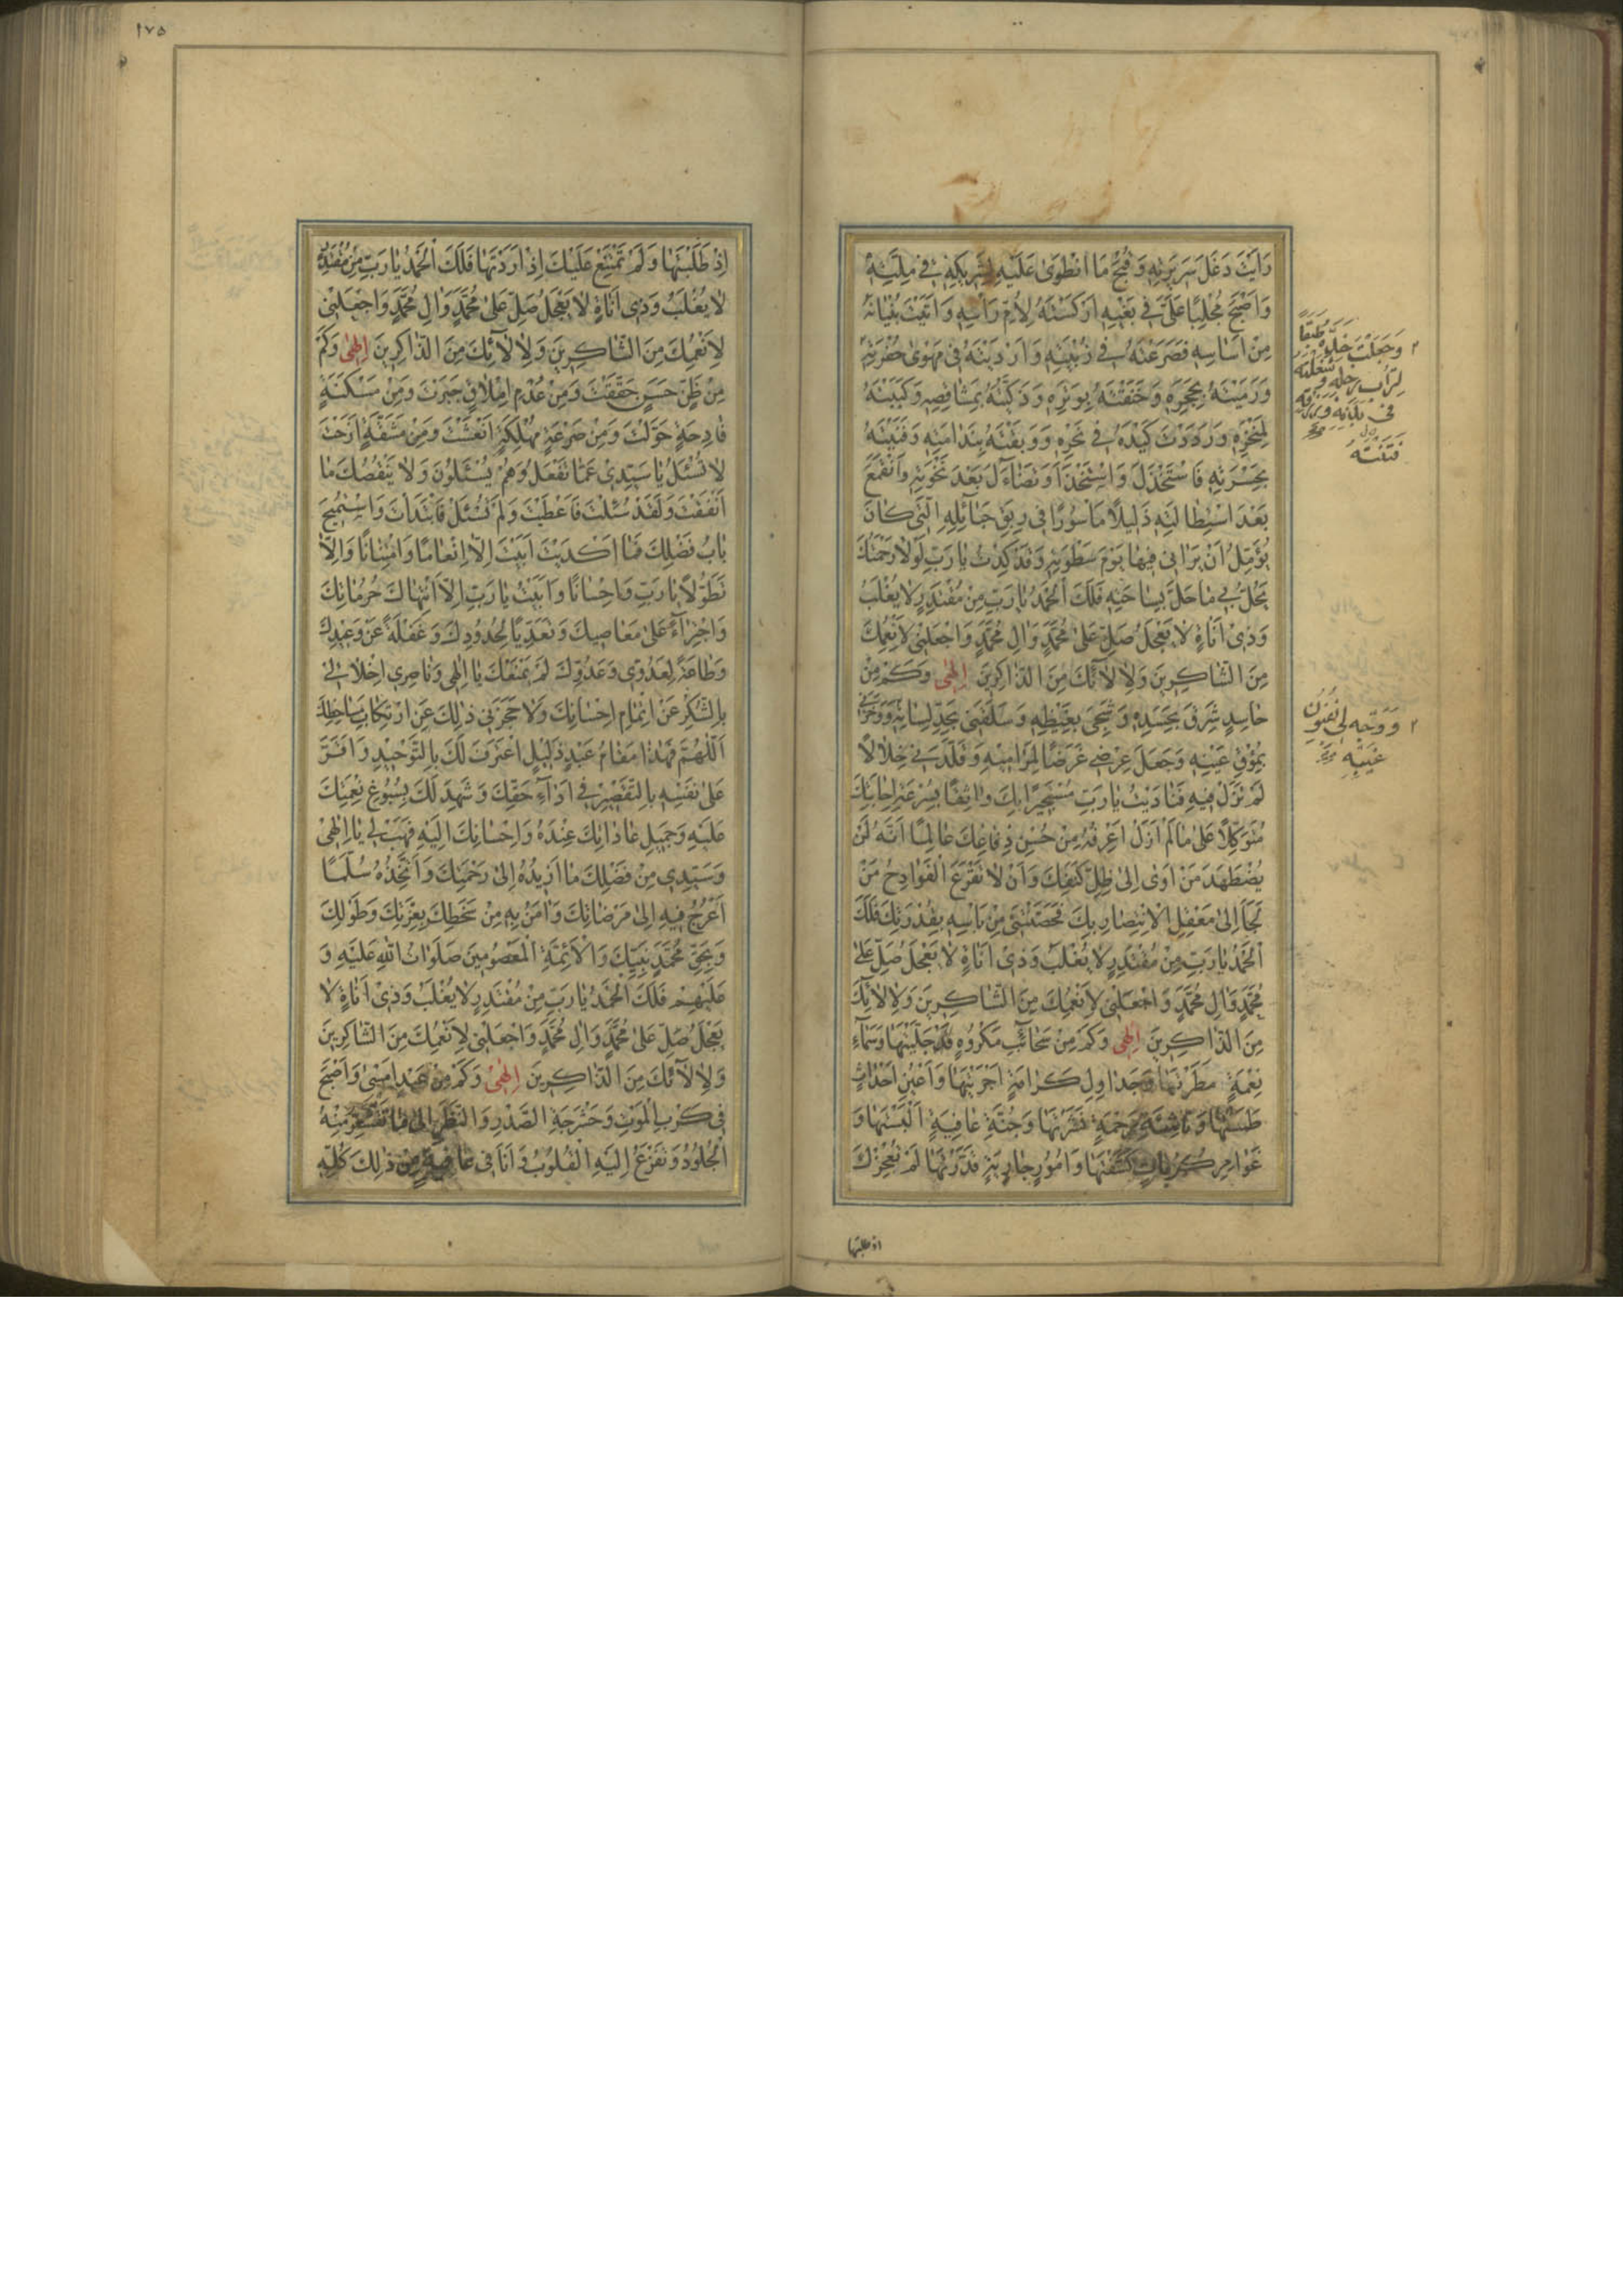 رَاَيْتَ دَغَلَ سَرِيرَتِهِ وَقُبْحَ مَا انْطَوٰى عَلَيْهِ لِشَرِيكِهِ فِي مِلَّتِهِ
وَاَصْبَحَ مُجْلِبًا عَلَيَّ فِي بَغْيِهِ اَرْكَسْتَهُ لِاُمِّ رَاْسِهِ وَاَتَيْتَ بُنْيَانَهُ
مِنْ اَسَاسِهِ فَصَرَعْتَهُ فِي زُبْيَتِهِ وَاَرْدَيْتَهُ فِي مَهْوٰى حُفْرَتِهِ
وَرَمَيْتَهُ بِحَجَرِهِ وَخَنَقْتَهُ بِوَتَرِهِ وَذَكَّيْتَهُ بِمَشَاقِصِهِ وَكَبَبْتَهُ
لِمَنْخِرِهِ وَرَدَدْتَ كَيْدَهُ فِي نَحْرِهِ وَوَبَقْتَهُ بِنَدَامَتِهِ وَفَنَيْتَهُ
بِحَسْرَتِهِ فَاسْتَخْذَلَ وَاسْتَخْذَاَ وَتَضَاءَلَ بَعْدَ نَخْوَتِهِ وَانْقَمَعَ
بَعْدَ اسْتِطَالَتِهِ ذَلِيلًا مَاْسُورًا فِي رِبْقِ حَبَائِلِهِ الَّتِي كَانَ
يُؤَمِّلُ اَنْ يَرَانِي فِيهَا يَوْمَ سَطْوَتِهِ وَقَدْ كِدْتُ يَا رَبِّ لَوْلَا رَحْمَتُكَ
يَحُلُّ بِي مَا حَلَّ بِسَاحَتِهِ فَلَكَ الْحَمْدُ يَا رَبِّ مِنْ مُقْتَدِرٍ لَا يُغْلَبُ
وَذِي اَنَاةٍ لَا يَعْجَلُ صَلِّ عَلٰى مُحَمَّدٍ وَاٰلِ مُحَمَّدٍ وَاجْعَلْنِي لِاَنْعُمِكَ
مِنَ الشَّاكِرِينَ وَلِاٰلَائِكَ مِنَ الذَّاكِرِينَ اِلٰهِي وَكَمْ مِنْ
حَاسِدٍ شَرِقَ بِحَسَدِهِ وَشَجِيَ بِغَيْظِهِ وَسَلَقَنِي بِحَدِّ لِسَانِهِ وَوَخَزَنِي
بِمُوْقِ عَيْنِهِ وَجَعَلَ عِرْضِي غَرَضًا لِمَرَامِيهِ وَقَلَّدَنِي خِلَالًا
لَمْ تَزَلْ فِيهِ فَنَادَيْتُ يَا رَبِّ مُسْتَجِيرًا بِكَ وَاثِقًا بِسُرْعَةِ اِجَابَتِكَ
مُتَوَكِّلًا عَلٰى مَا لَمْ اَزَلْ اَعْرِفُهُ مِنْ حُسْنِ دِفَاعِكَ عَالِمًا اَنَّهُ لَنْ
يُضْطَهَدَ مَنْ اَوٰى اِلٰى ظِلِّ كَنَفِكَ وَاَنْ لَا تَقْرَعَ الْفَوَادِحُ مَنْ
لَجَاَ اِلٰى مَعْقِلِ الْاِنْتِصَارِ بِكَ فَحَصَّنْتَنِي مِنْ بَاْسِهِ بِقُدْرَتِكَ فَلَكَ
الْحَمْدُ يَا رَبِّ مِنْ مُقْتَدِرٍ لَا يُغْلَبُ وَذِي اَنَاةٍ لَا يَعْجَلُ صَلِّ عَلٰى
مُحَمَّدٍ وَاٰلِ مُحَمَّدٍ وَاجْعَلْنِي لِاَنْعُمِكَ مِنَ الشَّاكِرِينَ وَلِاٰلَائِكَ
مِنَ الذَّاكِرِينَ اِلٰهِي وَكَمْ مِنْ سَحَائِبِ مَكْرُوهٍ قَدْ جَلَّيْتَهَا وَسَمَاءِ
نِعْمَةٍ مَطَرْتَهَا وَجَدَاوِلِ كَرَامَةٍ اَجْرَيْتَهَا وَاَعْيُنِ اَحْدَاثٍ
طَمَسْتَهَا وَنَاشِئَةِ رَحْمَةٍ نَشَرْتَهَا وَجُنَّةِ عَافِيَةٍ اَلْبَسْتَهَا وَ
غَوَامِرِ كُرُبَاتٍ كَشَفْتَهَا وَاُمُورٍ جَارِيَةٍ قَدَّرْتَهَا لَمْ تُعْجِزْكَ
اذ طلبتها
وَجَعَلْتَ خَدَّهُ طَبَقًا
لِتُرَابِ رِجْلِهِ وَشَغَلْتَهُ
فِي بَدَنِهِ وَرِزْقِهِ
وَوَجَّهَ لِي
١٧٥
اِذْ طَلَبْتَهَا وَلَمْ تَمْتَنِعْ عَلَيْكَ اِذْ اَرَدْتَهَا فَلَكَ الْحَمْدُ يَا رَبِّ مِنْ مُقْتَدِرٍ
لَا يُغْلَبُ وَذِي اَنَاةٍ لَا يَعْجَلُ صَلِّ عَلٰى مُحَمَّدٍ وَاٰلِ مُحَمَّدٍ وَاجْعَلْنِي
لِاَنْعُمِكَ مِنَ الشَّاكِرِينَ وَلِاٰلَائِكَ مِنَ الذَّاكِرِينَ اِلٰهِي وَكَمْ
مِنْ ظَنٍّ حَسَنٍ حَقَّقْتَ وَمِنْ عُدْمِ اِمْلَاقٍ جَبَرْتَ وَمِنْ مَسْكَنَةٍ
فَادِحَةٍ حَوَّلْتَ وَمِنْ صَرْعَةٍ مُهْلِكَةٍ اَنْعَشْتَ وَمِنْ مَشَقَّةٍ اَزَحْتَ
لَا تُسْئَلُ يَا سَيِّدِي عَمَّا تَفْعَلُ وَهُمْ يُسْئَلُونَ وَلَا يَنْقُصُكَ مَا
اَنْفَقْتَ وَلَقَدْ سُئِلْتَ فَاَعْطَيْتَ وَلَمْ تُسْئَلْ فَابْتَدَاْتَ وَاسْتُمِيحَ
بَابُ فَضْلِكَ فَمَا اَكْدَيْتَ اَبَيْتَ اِلَّا اِنْعَامًا وَامْتِنَانًا وَاِلَّا
تَطَوُّلًا يَا رَبِّ وَاِحْسَانًا وَاَبَيْتُ يَا رَبِّ اِلَّا انْتِهَاكَ حُرُمَاتِكَ
وَاجْتِرَاءً عَلٰى مَعَاصِيكَ وَتَعَدِّيًا لِحُدُودِكَ وَغَفْلَةً عَنْ وَعِيدِكَ
وَطَاعَةً لِعَدُوِّي وَعَدُوِّكَ لَمْ يَمْنَعْكَ يَا اِلٰهِي وَنَاصِرِي اِخْلَالِي
بِالشُّكْرِ عَنْ اِتْمَامِ اِحْسَانِكَ وَلَا حَجَزَنِي ذٰلِكَ عَنِ ارْتِكَابِ مَسَاخِطِكَ
اَللّٰهُمَّ فَهٰذَا مَقَامُ عَبْدٍ ذَلِيلٍ اعْتَرَفَ لَكَ بِالتَّوْحِيدِ وَاَقَرَّ
عَلٰى نَفْسِهِ بِالتَّقْصِيرِ فِي اَدَاءِ حَقِّكَ وَشَهِدَ لَكَ بِسُبُوغِ نِعْمَتِكَ
عَلَيْهِ وَجَمِيلِ عَادَاتِكَ عِنْدَهُ وَاِحْسَانِكَ اِلَيْهِ فَهَبْ لِي يَا اِلٰهِي
وَسَيِّدِي مِنْ فَضْلِكَ مَا اُرِيدُهُ اِلٰى رَحْمَتِكَ وَاَتَّخِذُهُ سُلَّمًا
اَعْرُجُ فِيهِ اِلٰى مَرْضَاتِكَ وَاٰمَنُ بِهِ مِنْ سَخَطِكَ بِعِزَّتِكَ وَطَوْلِكَ
وَبِحَقِّ مُحَمَّدٍ نَبِيِّكَ وَالْاَئِمَّةِ الْمَعْصُومِينَ صَلَوَاتُ اللهِ عَلَيْهِ وَ
عَلَيْهِمْ فَلَكَ الْحَمْدُ يَا رَبِّ مِنْ مُقْتَدِرٍ لَا يُغْلَبُ وَذِي اَنَاةٍ لَا
يَعْجَلُ صَلِّ عَلٰى مُحَمَّدٍ وَاٰلِ مُحَمَّدٍ وَاجْعَلْنِي لِاَنْعُمِكَ مِنَ الشَّاكِرِينَ
وَلِاٰلَائِكَ مِنَ الذَّاكِرِينَ اِلٰهِي وَكَمْ مِنْ عَبْدٍ اَمْسٰى وَاَصْبَحَ
فِي كَرْبِ الْمَوْتِ وَحَشْرَجَةِ الصَّدْرِ وَالنَّظَرِ اِلٰى مَا تَقْشَعِرُّ مِنْهُ
الْجُلُودُ وَتَفْزَعُ اِلَيْهِ الْقُلُوبُ وَاَنَا فِي عَافِيَةٍ مِنْ ذٰلِكَ كُلِّهِ